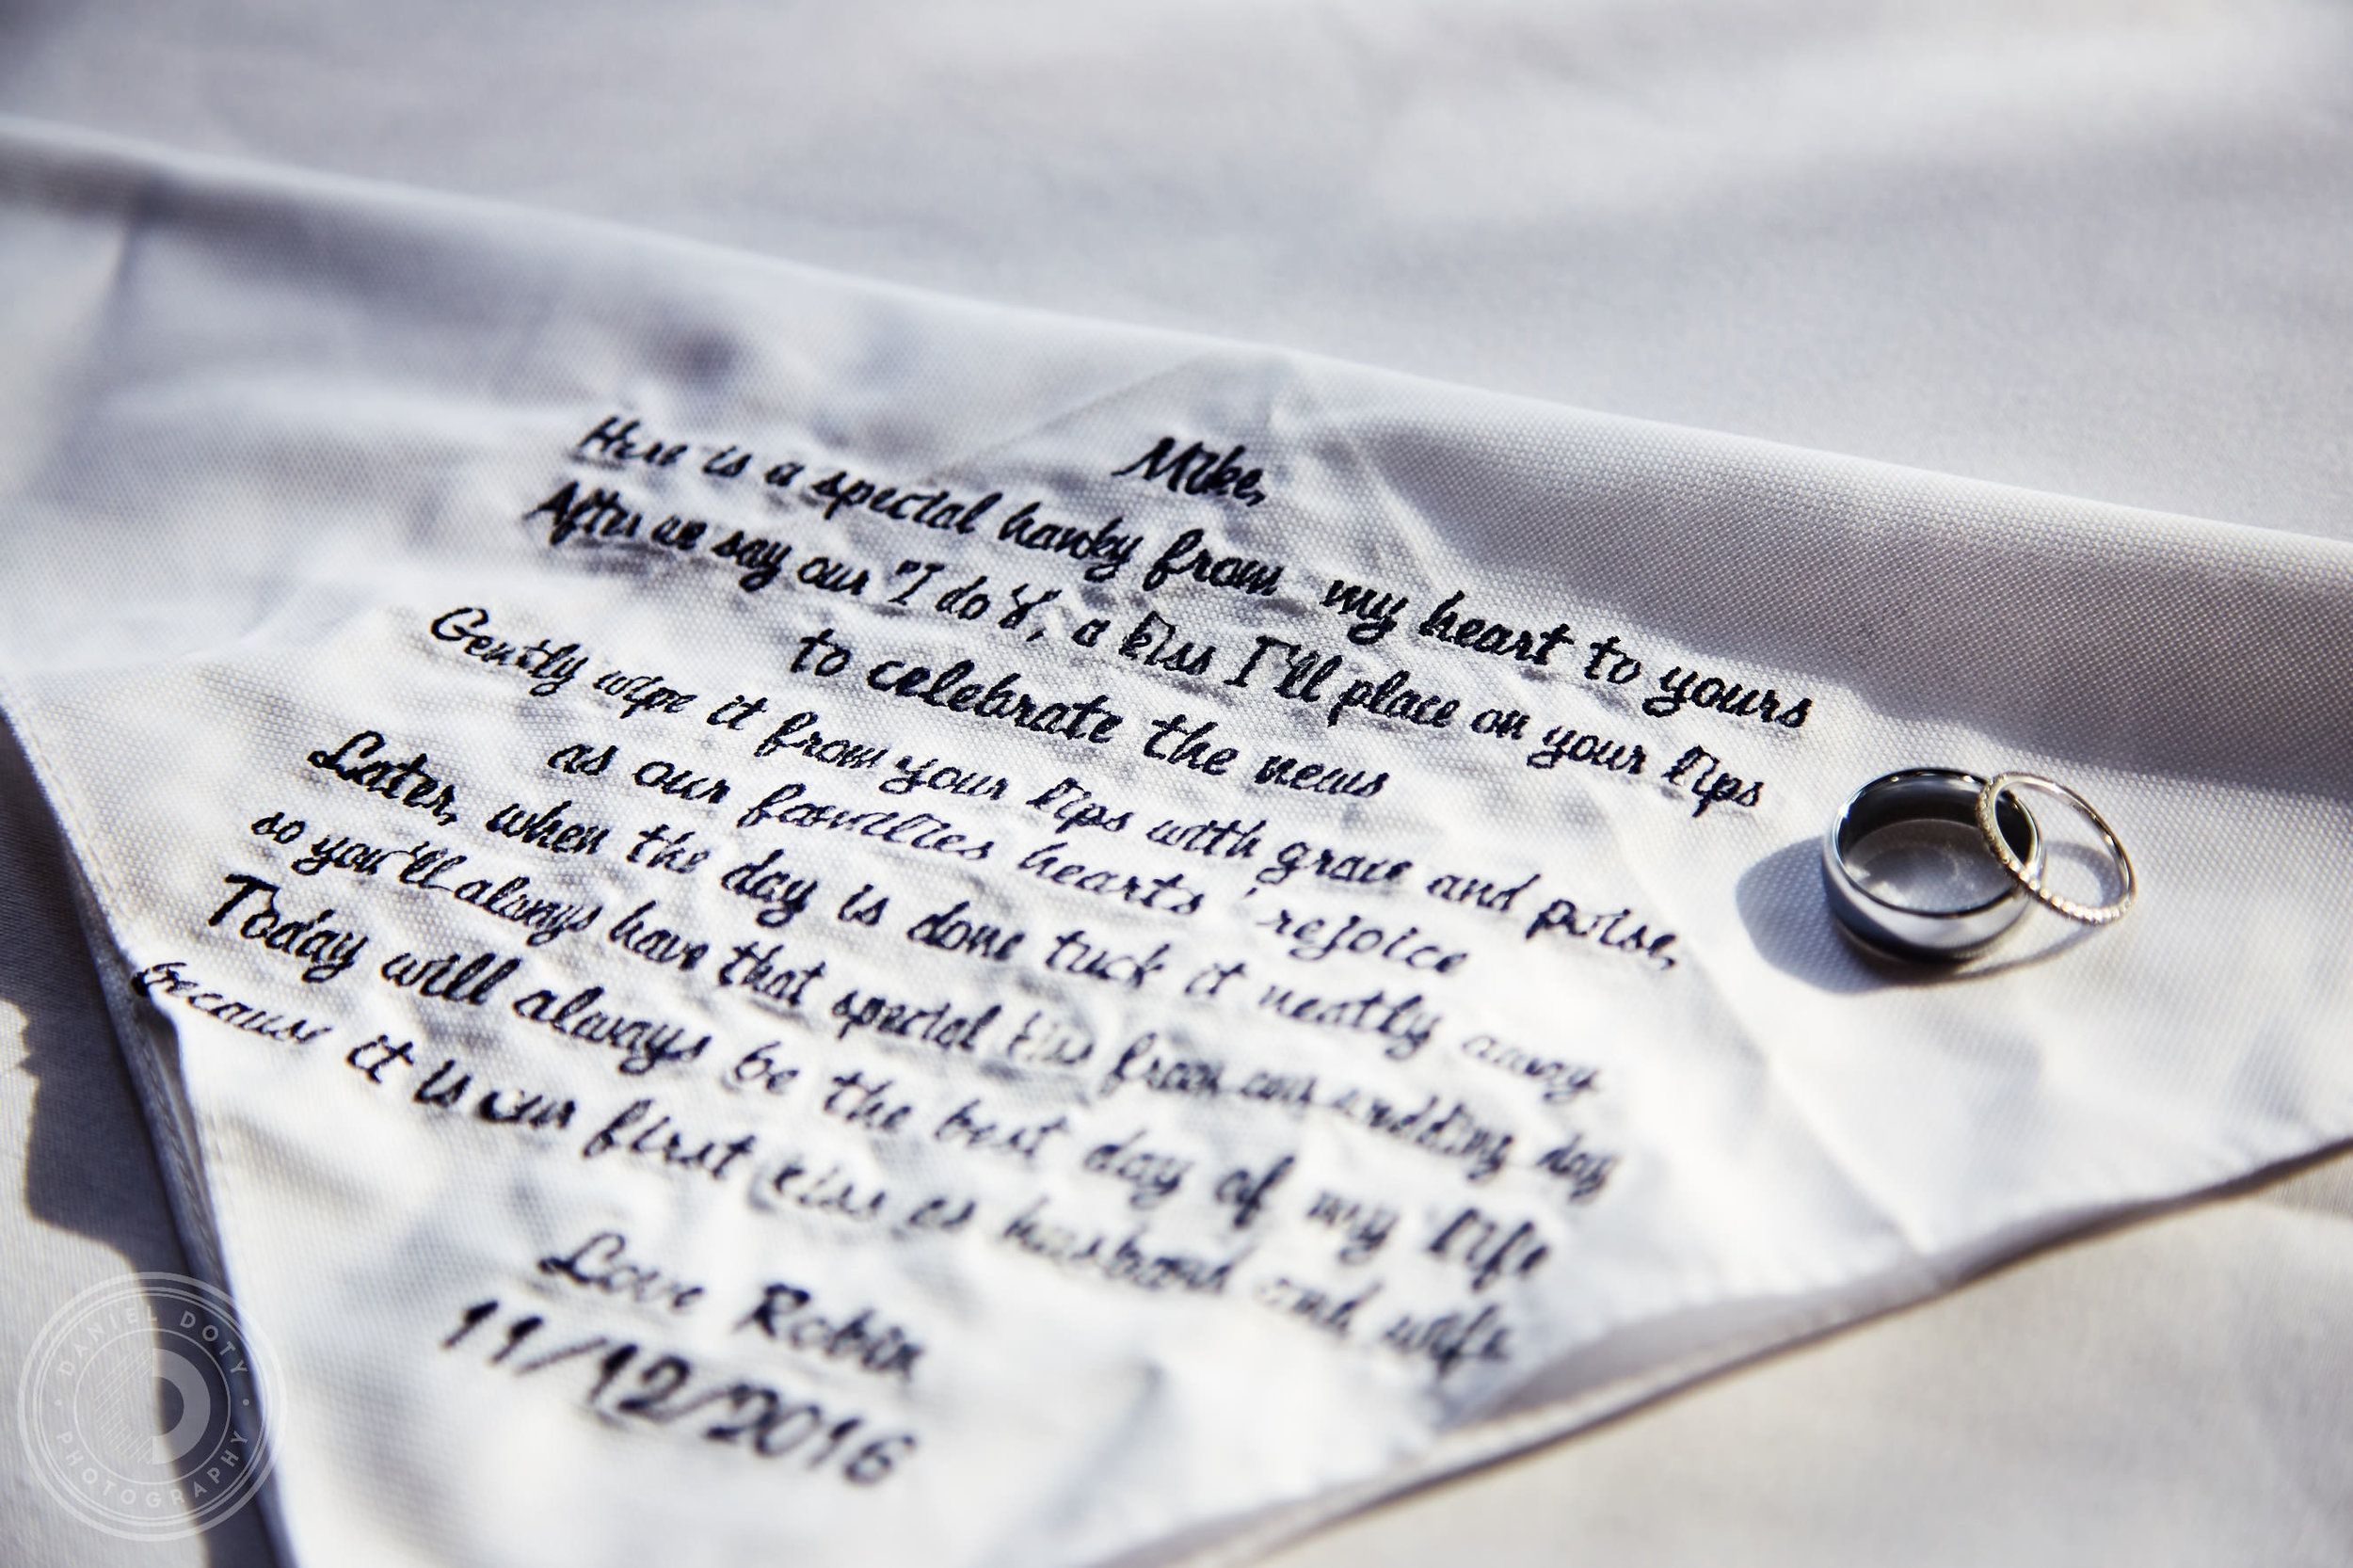 Mike,
Here is a special hanky from my heart to yours
After we say our "I do's", a kiss I'll place on your lips
to celebrate the news
Gently wipe it from your lips with grace and poise,
as our families hearts' rejoice
Later, when the day is done tuck it neatly away
so you'll always have that special kiss from our wedding day
Today will always be the best day of my life
because it is our first kiss as husband and wife
Love Robin
11/12/2016
DANIEL DOTY
PHOTOGRAPHY